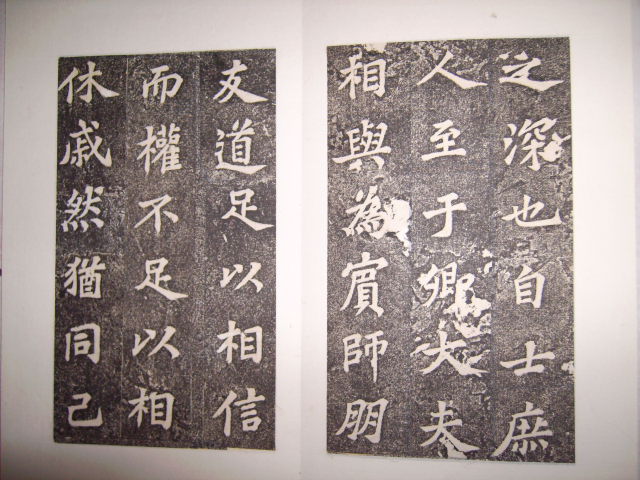 之深也自士庶
人至于卿大夫
相與為賓師朋
友道足以相信
而權不足以相
休戚然猶同己